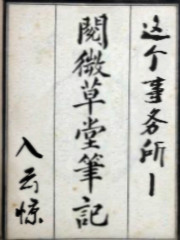 这个事务所一
閱微草堂筆記
入云惊